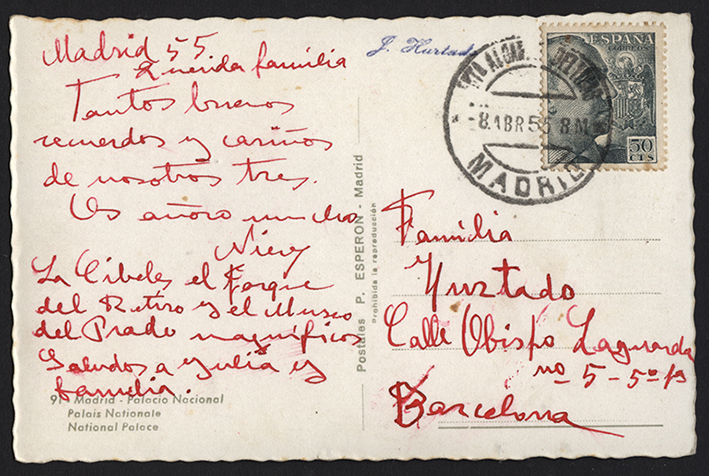 Madrid 55
Querida familia
Tantos buenos
recuerdos y cariños
de nosotros tres.
Os añoro mucho
Nievy
La Cibeles, el Parque
del Retiro y el Museo
del Prado magnificos
Saludos a Yulia y
familia.
91 - Madrid - Palacio Nacional
Palais Nationale
National Palace
Postales P. ESPERON - Madrid
Prohibida la reproducción
J. Hurtado
-8.ABR 55 8M
MADRID
ESPAÑA
CORREOS
50
CTS
Familia
Yurtado
Calle Obispo Laguarda
no 5 - 5º
Barcelona